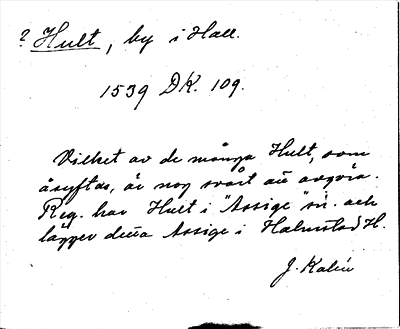 ? Hult, by i Hall.
1539 DK. 109.
Vilket av de många Hult, som
åsyftas, är nog svårt att avgöra.
Reg. har Hult i "Assige" sn. och
lägger detta Assige i Halmstad H.
J. Kalén